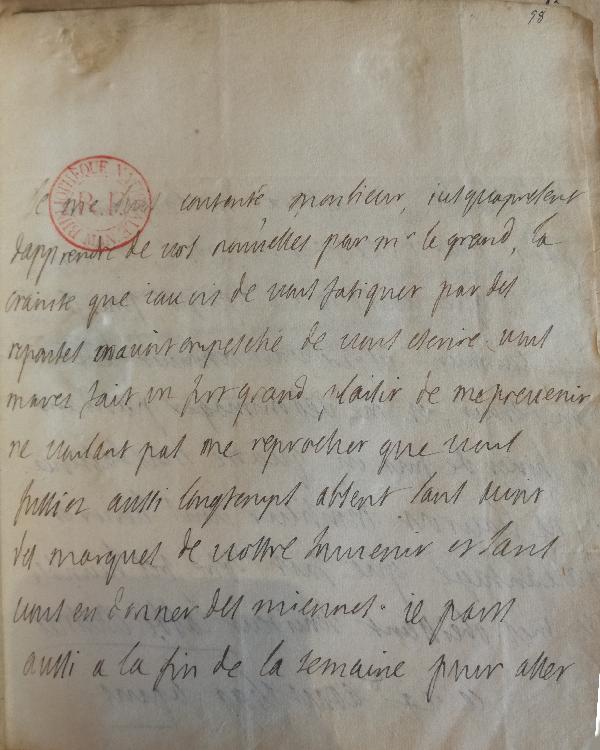 98
BIBLIOTHEQUE NATIONALE
R.F.
Je me suis contanté monsieur, iusquaprésent
dapprendre de vos nouvelles par mr le grand, la
crainte que iavois de vous fatiguer par des
reponses mavoit empesché de vous escrire. vous
mavez fait un fort grand plaisir de me prevenir
ne voulant pas me reprocher que vous
fussiez aussi longtemps absent sans avoir
des marques de vostre souvenir et sans
vous en donner des miennes. ie pars
aussi a la fin de la semaine pour aller